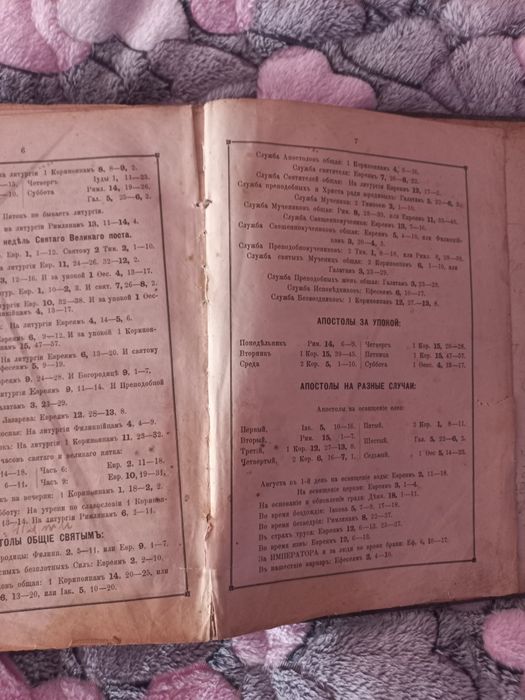 6
на литургіи 1 Коринѳянамъ 8, 8—9, 2.
—15, Четвергъ Іуды 1, 11—23.
—10. Суббота Римл. 14, 19—26.
Гал. 5, 22—6, 2.
Пятокъ не бываетъ литургіи.
на литургіи Римлянамъ 13, 11—14, 4.
недѣль Святаго Великаго поста.
Евр. 1, 1—12. Святому 2 Тим. 2, 1—10.
на литургіи Евр. 11, 24—26, 32—12, 2.
3, 12—16. И за упокой 1 Ѳес. 4, 13—17.
Евр. 1, 10—2, 3. И свят. 7, 26—8, 2.
Евр. 10, 32—38. И за упокой 1 Ѳес-
4, 13—17.
На литургіи Евреямъ 4, 14—5, 6.
6, 9—12. И за упокой 1 Коринѳя-
15, 47—57.
На литургіи Евреямъ 6, 13—20. И святому
Ефесеямъ 5, 9—19.
Евреямъ 9, 24—28. И Богородицѣ 9, 1—7.
литургіи Евреямъ 9, 11—14. И Преподобной
Галатамъ 3, 23—29.
Лазарева: Евреямъ 12, 28—13, 8.
На литургіи Филиппійцамъ 4, 4—9.
На литургіи 1 Коринѳянамъ 11, 23—32.
часовъ святаго и великаго пятка:
14—18. Часъ 6: Евр. 2, 11—18.
6, 11. Часъ 9: Евр. 10, 19—31,
на вечерни: 1 Коринѳянамъ 1, 18—2, 2.
Субботу: На утрени по славословіи 1 Коринѳя-
13—14. На литургіи Римлянамъ 6, 3—11.
АПОСТОЛЫ ОБЩІЕ СВЯТЫМЪ:
Филипп. 2, 5—11, или Евр. 9, 1—7.
безплотныхъ Силъ: Евреямъ 2, 2—10.
общая: 1 Коринѳянамъ 14, 20—25, или
6, 13—20, или Іак. 5, 10—20.
7
Служба Апостоловъ общая: 1 Коринѳянамъ 4, 9—16.
Служба святителю: Евреямъ 7, 26—8, 2.
Служба Святителей общая: На литургіи Евреямъ 13, 17—21.
Служба преподобныхъ и Христа ради юродивыхъ: Галат. 5, 22—6, 2.
Служба Мученика: 2 Тимоѳею 2, 1—10.
Служба Мучениковъ общая: Рим. 8, 28—39, или Евреямъ 11, 33—40.
Служба Священномученику: Евреямъ 13, 7—16.
Служба Священномучениковъ общая: Евреямъ 5, 4—10, или Филиппій-
камъ 3, 20—4, 3.
Служба Преподобномучениковъ: 2 Тим. 1, 8—18, или Римл. 8, 28—39.
Служба святыхъ Мученицъ общая: 2 Коринѳянамъ 6, 1—10, или
Галатамъ 3, 23—29.
Служба Преподобныхъ женъ общая: Галатамъ 3, 23—29.
Служба Исповѣдниковъ: Ефесеямъ 6, 10—17.
Служба Безмездниковъ: 1 Коринѳянамъ 12, 27—13, 8.
АПОСТОЛЫ ЗА УПОКОЙ:
Понедѣльникъ Рим. 14, 6—9. Четвергъ 1 Кор. 15, 20—28.
Вторникъ 1 Кор. 15, 39—45. Пятница 1 Кор. 15, 47—57.
Среда 2 Кор. 5, 1—10. Суббота 1 Ѳес. 4, 13—17.
АПОСТОЛЫ НА РАЗНЫЕ СЛУЧАИ:
Апостолы на освященіе елея:
Первый, Іак. 5, 10—16. Пятый, 2 Кор. 1, 8—11.
Второй, Рим. 15, 1—7. Шестый, Гал. 5, 22—6, 2.
Третій, 1 Кор. 12, 27—13, 8. Седьмый, 1 Ѳес 5, 14—23.
Четвертый, 2 Кор. 6, 16—7, 1.
Августа въ 1-й день на освященіе воды: Евреямъ 2, 11—18.
На освященіе церкве: Евреямъ 3, 1—4.
На основаніе и обновленіе града: Дѣян. 18, 1—11.
Во время бездождія: Іакова 5, 7—9, 17—18.
Во время безведрія: Римлянамъ 8, 22—27.
Въ страхъ труса: Евреямъ 12, 6—13, 25—27.
Во время язвы: Евреямъ 12, 6—13.
За ИМПЕРАТОРА и за люди во время брани: Еф. 6, 10—17.
Въ нашествіе варваръ: Ефесеямъ 2, 4—10.